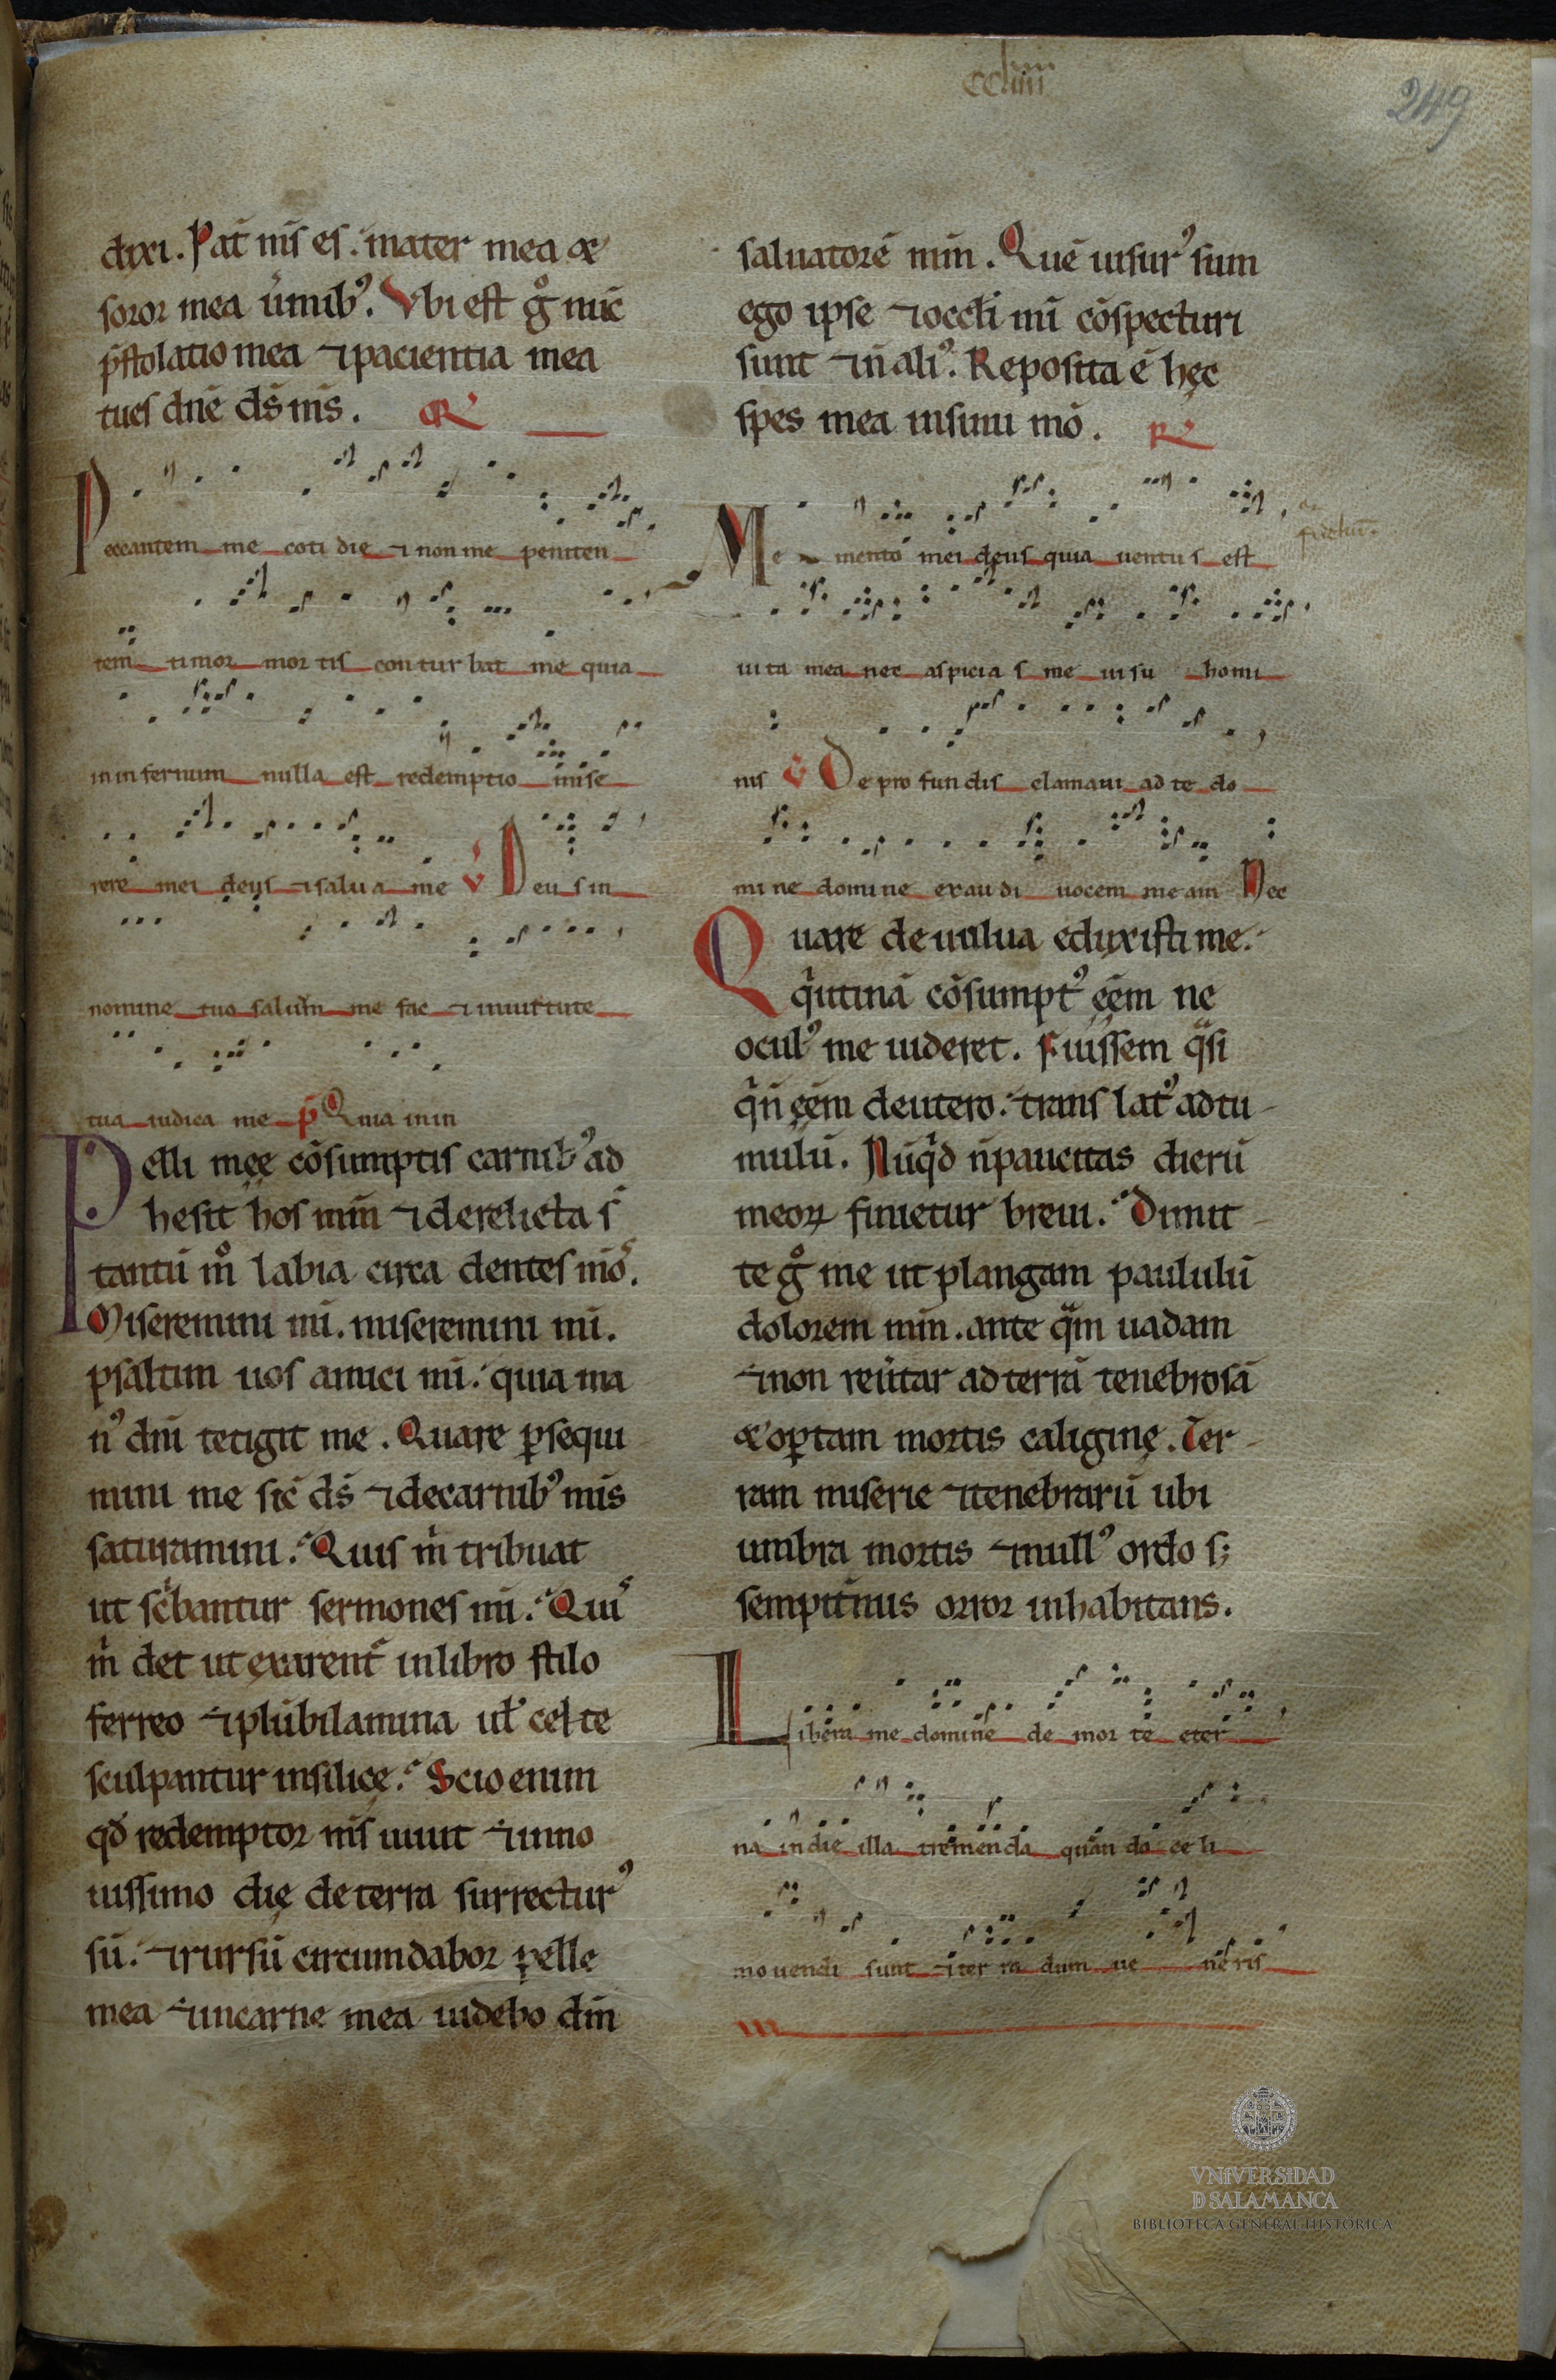 ccliiii
249
dixi. Pat̄ m̄s es. mater mea &
soror mea u̾mibꝰ. Vbi est g̊ nūc
p̄stolatio mea ⁊ pacientia mea
tues dn̄e ds̄ m̄s. R̸
Peccantem me coti die ⁊ non me peniten
tem timor mor tis contur bat me quia
in in fernum nulla est redemptio mise
rere mei deus ⁊ salu a me V̸ Deus in
nomine tuo saluūm me fac ⁊ inuirtute
tua iudica me p̄ Quia in in
Pelli męę cōsumptis carnibꝰ ad
hesit hos mm̄ ⁊ derelicta s̄
tantū m̊ labia circa dentes mōs.
Miseremini m̄i. miseremini m̄i.
psaltim uos amici m̄i. quia ma
nꝰ dn̄i tetigit me. Quare ꝑsequi
mini me sic̄ ds̄ ⁊ decarnibꝰ m̄is
saturamini. Quis m̄ tribuat
ut sc̄bantur sermones m̄i. Quis
m̄ det ut exarent̄ inlibro stilo
ferreo ⁊ plūbilamina ul̄ celte
sculpantur insilicę. Scio enim
qđ redemptor m̄s uiuit ⁊ inno
uissimo dię deterra surrecturꝰ
sū. ⁊ rursū circumdabor pelle
mea ⁊ incarne mea uidebo dm̄
saluatorē mm̄. Quē uisurꝰ sum
ego ipse ⁊ occl̄i m̄i cōspecturi
sunt ⁊ n̄ aliꝰ. Reposita ē hęc
spes mea insinu mō. R̸
Me mento mei deus quia uentus est
uita mea nec aspicia s me uisu homi
nis V̸ De pro fun dis clamaui ad te do
mi ne domine exau di uocem meam Nec
Quare deuulua eduxisti me.
q̄utinā cōsumptꝰ eēm ne
oculꝰ me uideret. Fuissem q̄si
q̄n̄ eēm deutero. trans latꝰ adtu
mulū. Nūqđ n̄paucitas dierū
meoꝝ finietur breui. Dimit
te g̊ me ut plangam paululū
dolorem mm̄. ante q̄m uadam
⁊ non reūtar ad terrā tenebrosā
& oꝑtam mortis caliginę. Ter
ram miserie ⁊ tenebrarū ubi
umbra mortis ⁊ nullꝰ ordo s;
sempit̄nus orror inhabitans.
Libera me domine de mor te eter
na indie illa tremenda quan do ce li
mouendi sunt ⁊ ter ra dum ue neris
VNIVERSIDAD
D SALAMANCA
BIBLIOTECA GENERAL HISTÓRICA